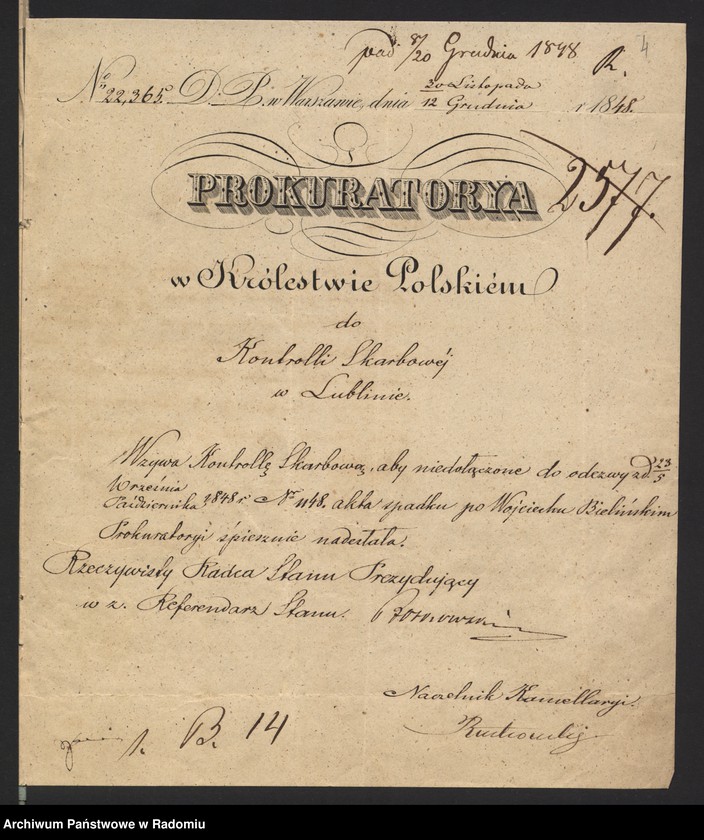 pad 8/20 Grudnia 1848 R. 4
No 22,365. D. P. w Warszawie, dnia 30 Listopada / 12 Grudnia r 1848.
PROKURATORYA
2577.
w Królestwie Polskiém
do
Kontrolli Skarbowéj
w Lublinie.
Wzywa Kontrollę Skarbową, aby niedołączone do odezwy z d. 23/5
Września
Października 1848 r. Nr 1148. akta spadku po Wojciechu Bielińskim
Prokuratoryi śpiesznie nadesłała.
Rzeczywisty Radca Stanu Prezydujący
w z. Referendarz Stanu.
Naczelnik Kancellaryi.
1. B. 14
Archiwum Państwowe w Radomiu